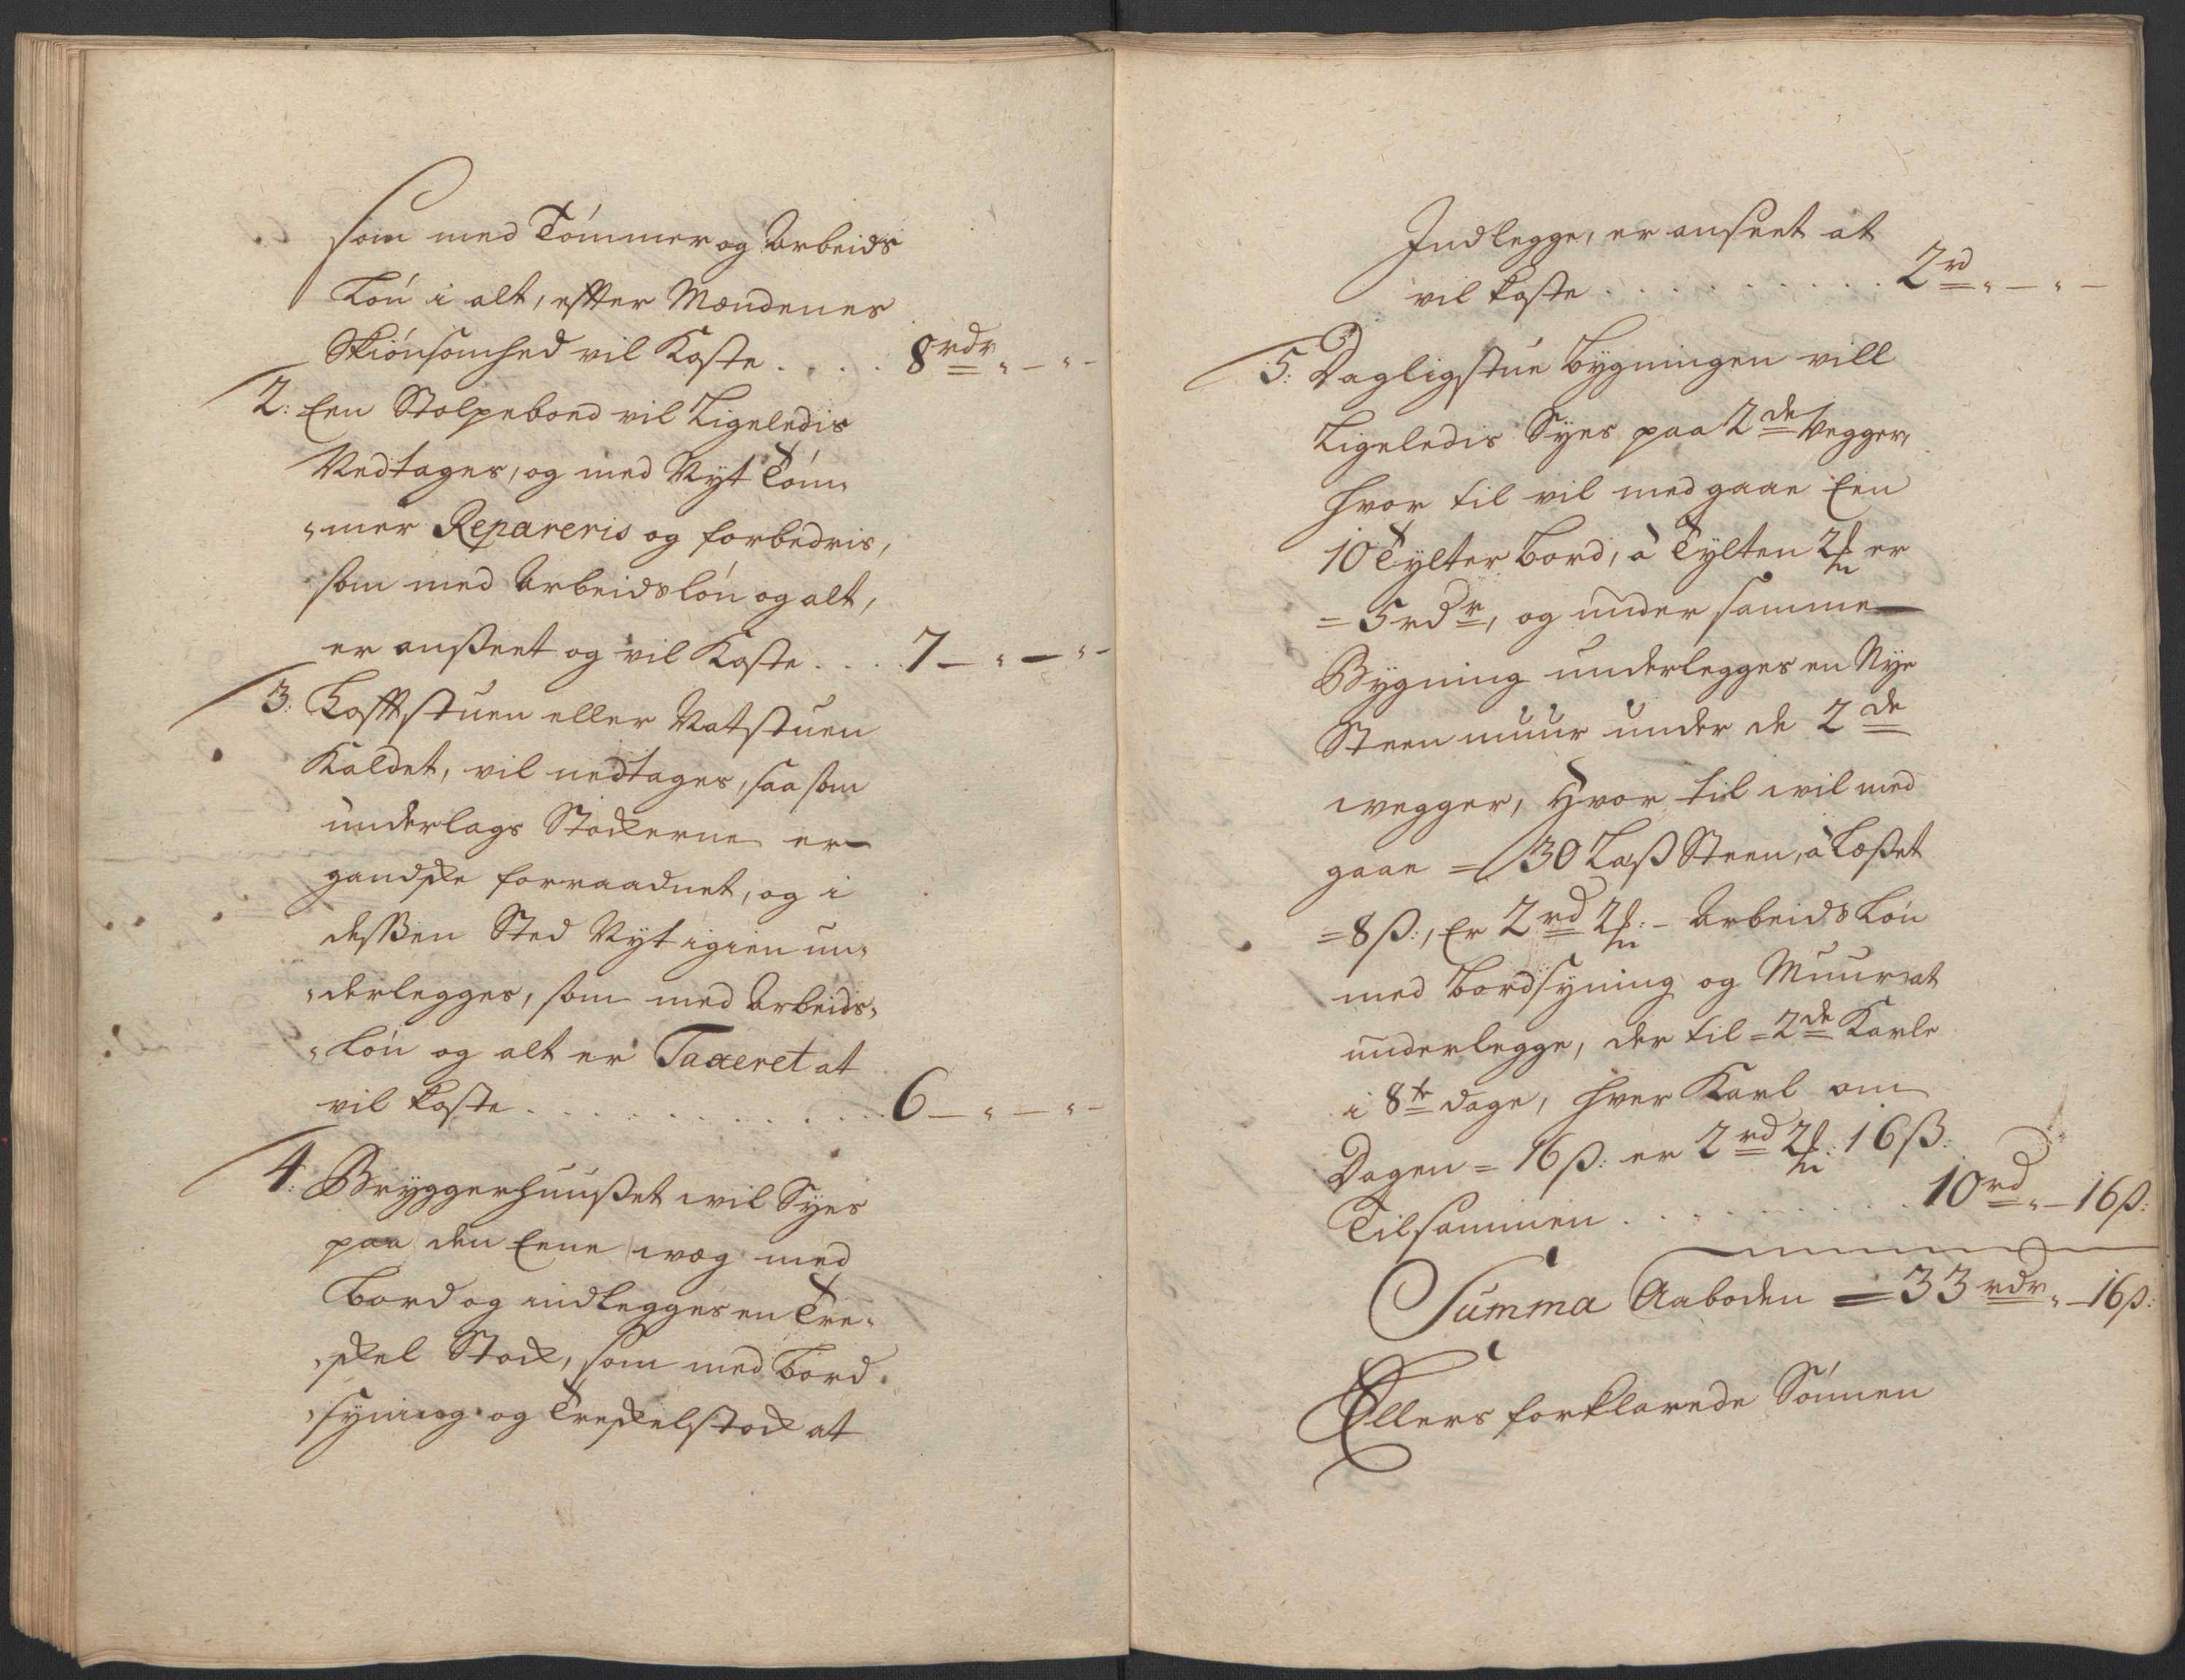 som med Tómmer og Arbeids
Lón i alt, effter Mændenes
Skiónsomhed vil Koste . . . . 8 rdr " – " –
2: Een Stolpeboed vil Ligeledis
Nedtages, og med Nyt Tóm„
„mer Repareris og forbedris,
som med Arbeidslón og alt,
er anßeet og vil Koste . . . 7 – " – " –
3: Lofftstuen eller Natstuen
Kaldet, vil nedtages, saa som
underlags Stockerne er
gandske forraadnet, og i
deßen Sted Nyt igien un„
„derlegges, som med Arbeids„
„Lón og alt er Taxeret at
vil koste . . . . . . . . . . . 6 – " – " –
4: Bryggerhuußet wil Syes
paa den Eene wæg med
Bord og indlegges en Tre„
„skel Stock, som med Bord„
„syning og Treskelstock at
Indlegge, er anseet at
vil koste . . . . . . . . . . . 2 rd " – " –
5: Dagligstue Bygningen vill
Ligeledis Syes paa 2de Vegger,
hvor til vil medgaae Een
10 Tylter Bord, à Tylten 2 ₥ er
= 5 rdr, og under samme
Bygning underlegges en Nye
Steen muur under de 2de
wegger, Hvor til wil med
gaae = 30 Læß Steen, à Læßet
= 8 ß:, Er 2 rd 2 ₥: – Arbeids Lón
med Bordsyning og Muur at
underlegge, der til = 2de Karle
i 8te dage, hver Karl om
Dagen = 16 ß: er 2 rd 2 ₥: 16 ß:
Tilsammen . . . . . . . . . . 10 rd " – 16 ß:
Summa Aaboden = 33 rdr " – 16 ß:
Ellers forklarede Sónnen